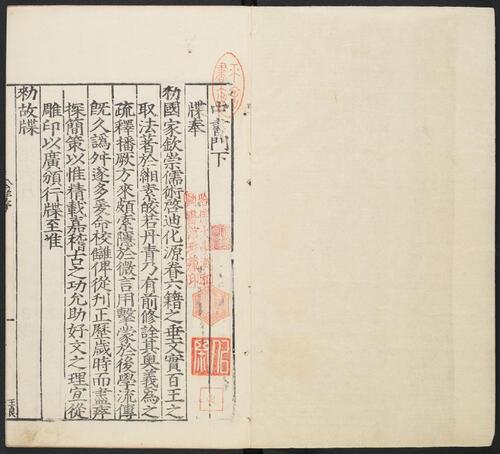 中書門下
牒奉
勑國家欽崇儒術啓迪化源眷六籍之垂文實百王之
取法著於緗素皎若丹青乃有前修詮其奧義為之
疏釋播厥方來頗索隱於微言用擊蒙於後學流傳
旣久譌舛遂多爰命校讎俾從刊正歷歲時而盡瘁
探簡策以惟精載嘉稽古之功允助好文之理宜從
雕印以廣頒行牒至准
勑故牒